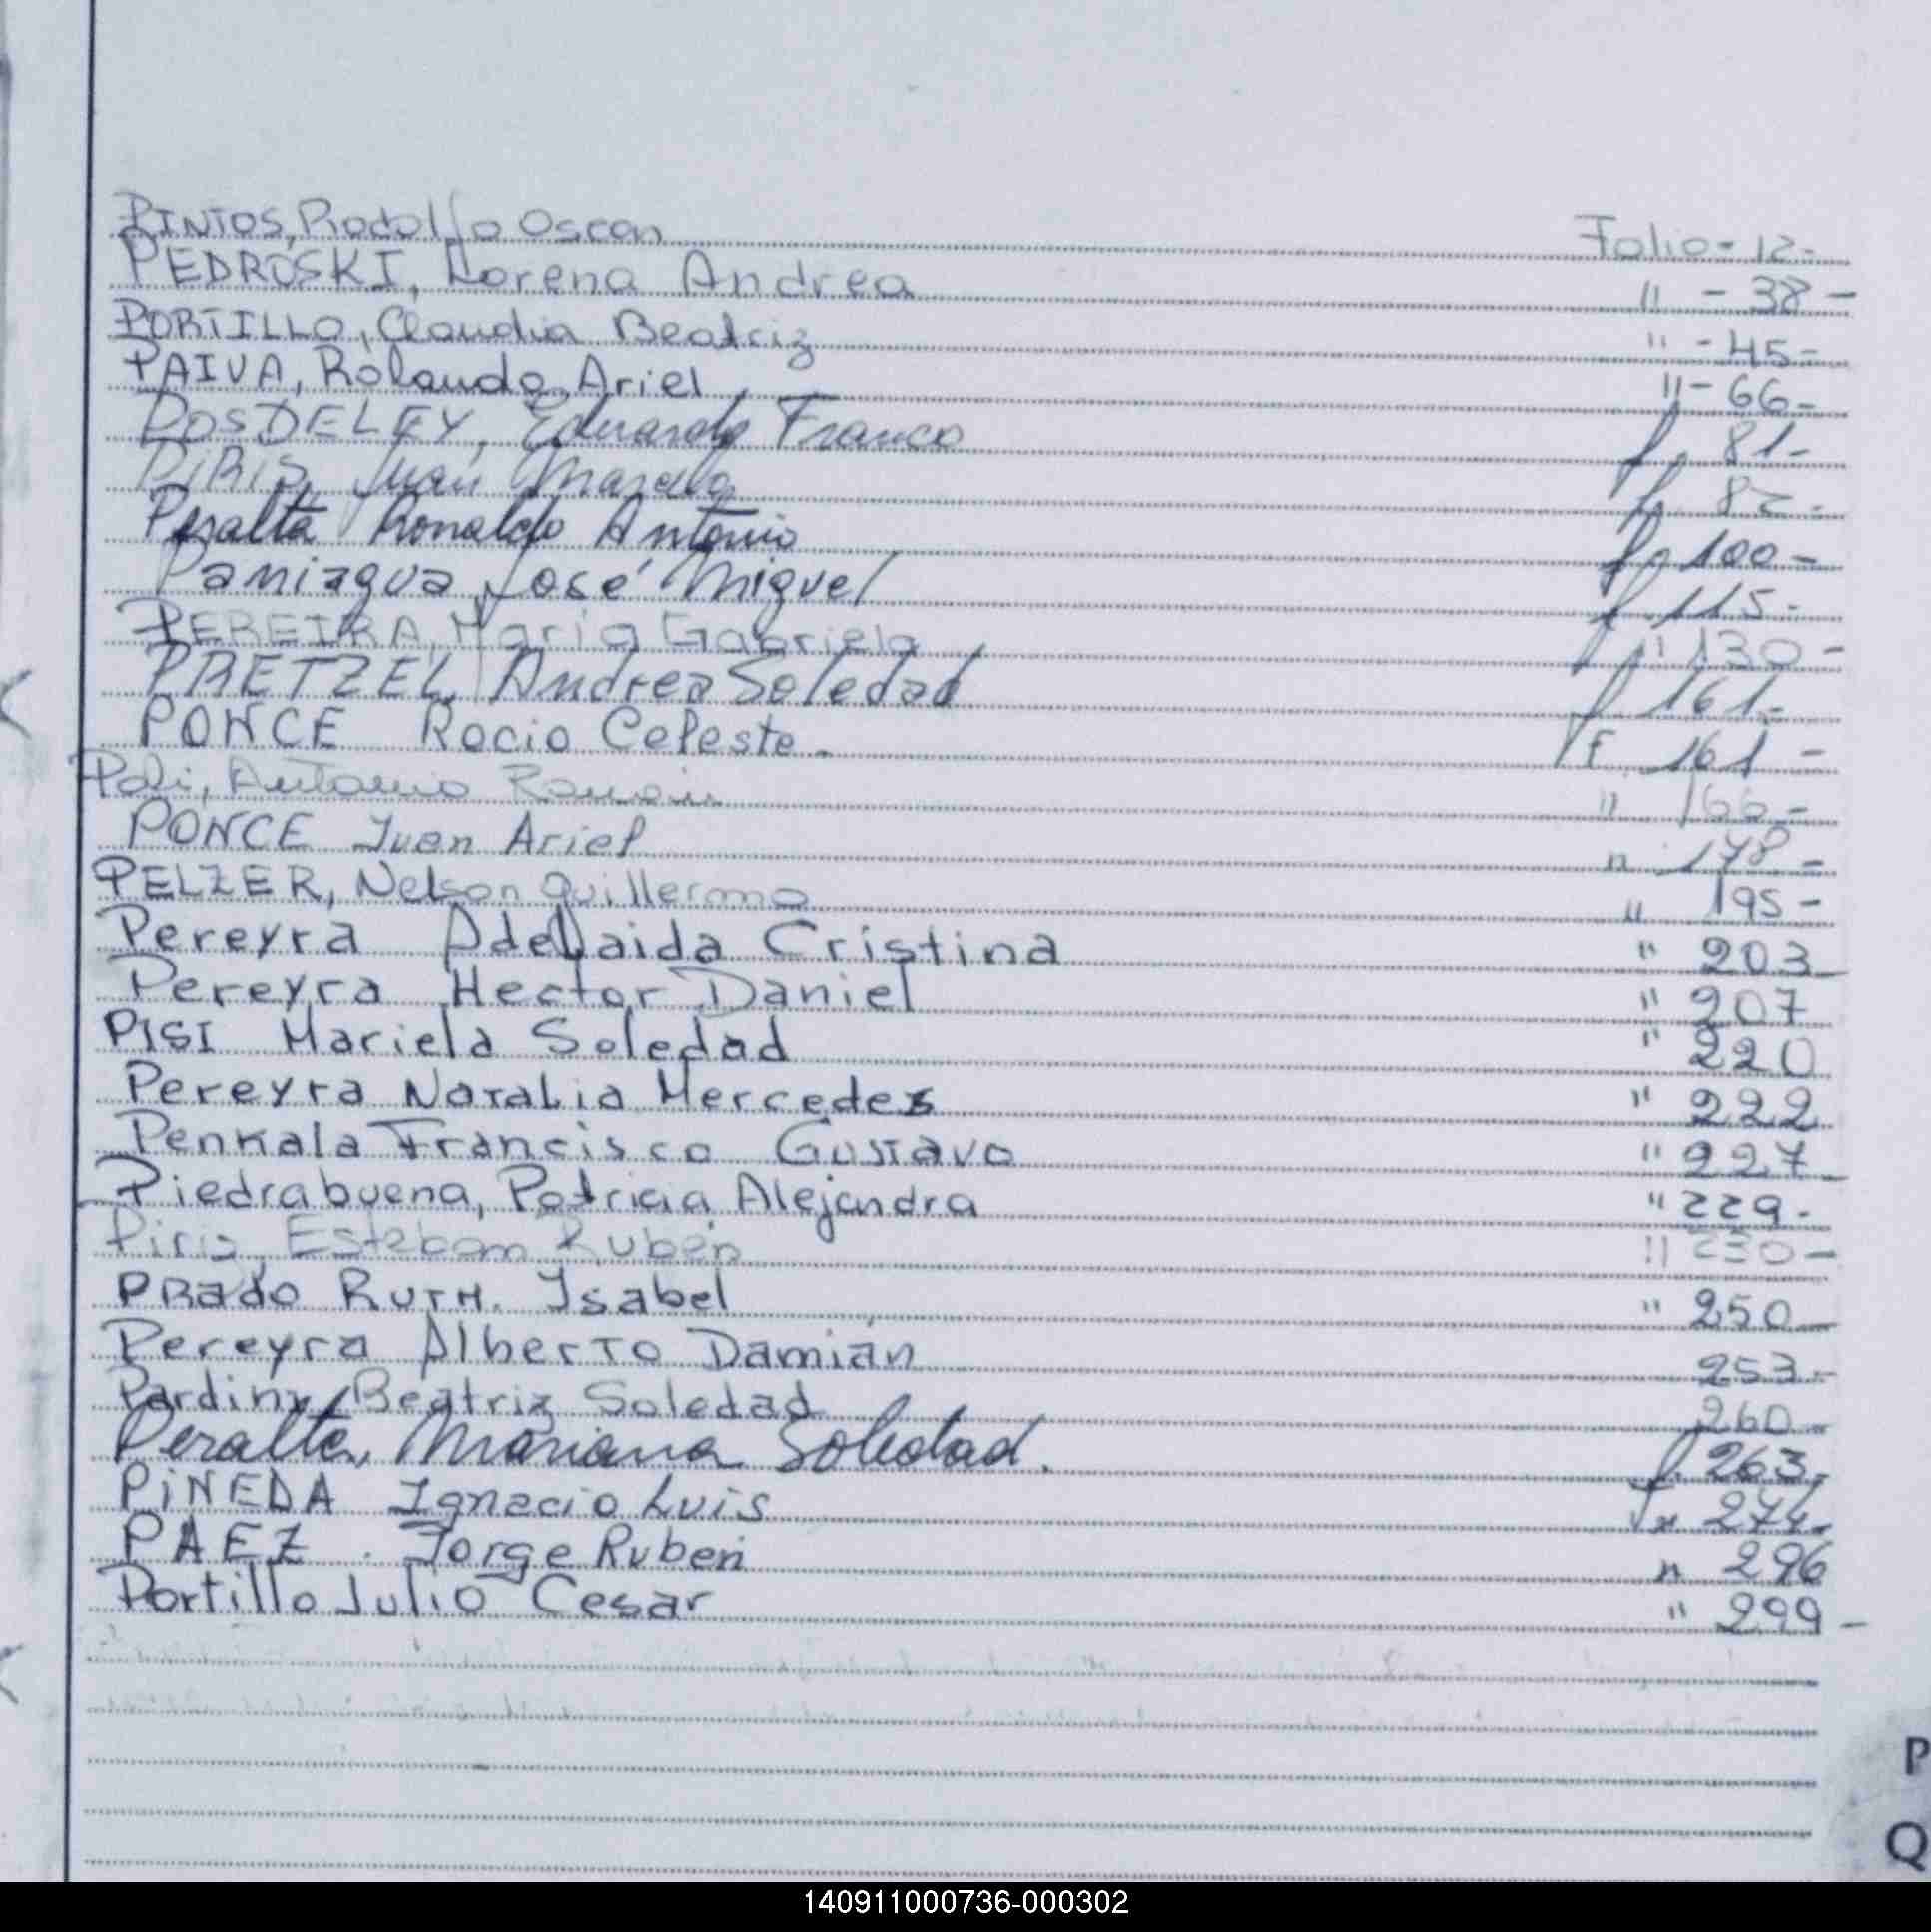 PINTOS, Rodolfo Oscar Folio - 12 -
PEDROSKI, Lorena Andrea " - 38 -
PORTILLO, Claudia Beatriz " - 45 -
PAIVA, Rolando Ariel " - 66 -
POSDELEY, Eduardo Franco f. 81 -
PiRIS, Juan Marcelo f. 82 -
Peralta Ronaldo Antonio f. 100 -
Paniagua, José Miguel f. 115 -
PEREIRA, María Gabriela " 130 -
PRETZEL, Andrea Soledad f 161 -
PONCE Rocio Celeste - F 161 -
Poli, Antonio Ramón " 166 -
PONCE Juan Ariel " 178 -
PELZER, Nelson Guillermo " 195 -
Pereyra Adelaida Cristina " 203 -
Pereyra Hector Daniel " 207
PISI Mariela Soledad " 220
Pereyra Natalia Mercedes " 222
Penkala Francisco Gustavo " 227 -
Piedrabuena, Patricia Alejandra " 229 -
Piris, Esteban Rubén " 230 -
PRado RUTH. Isabel " 250 -
Pereyra Alberto Damián 253 -
Pardiny Beatriz Soledad 260 -
Peralta, Mariana Soledad. f. 263 -
PiNEDA Ignacio Luis " 274 -
PAEZ. Jorge Ruben " 296
Portillo Julio Cesar " 299 -
P
Q
140911000736-000302